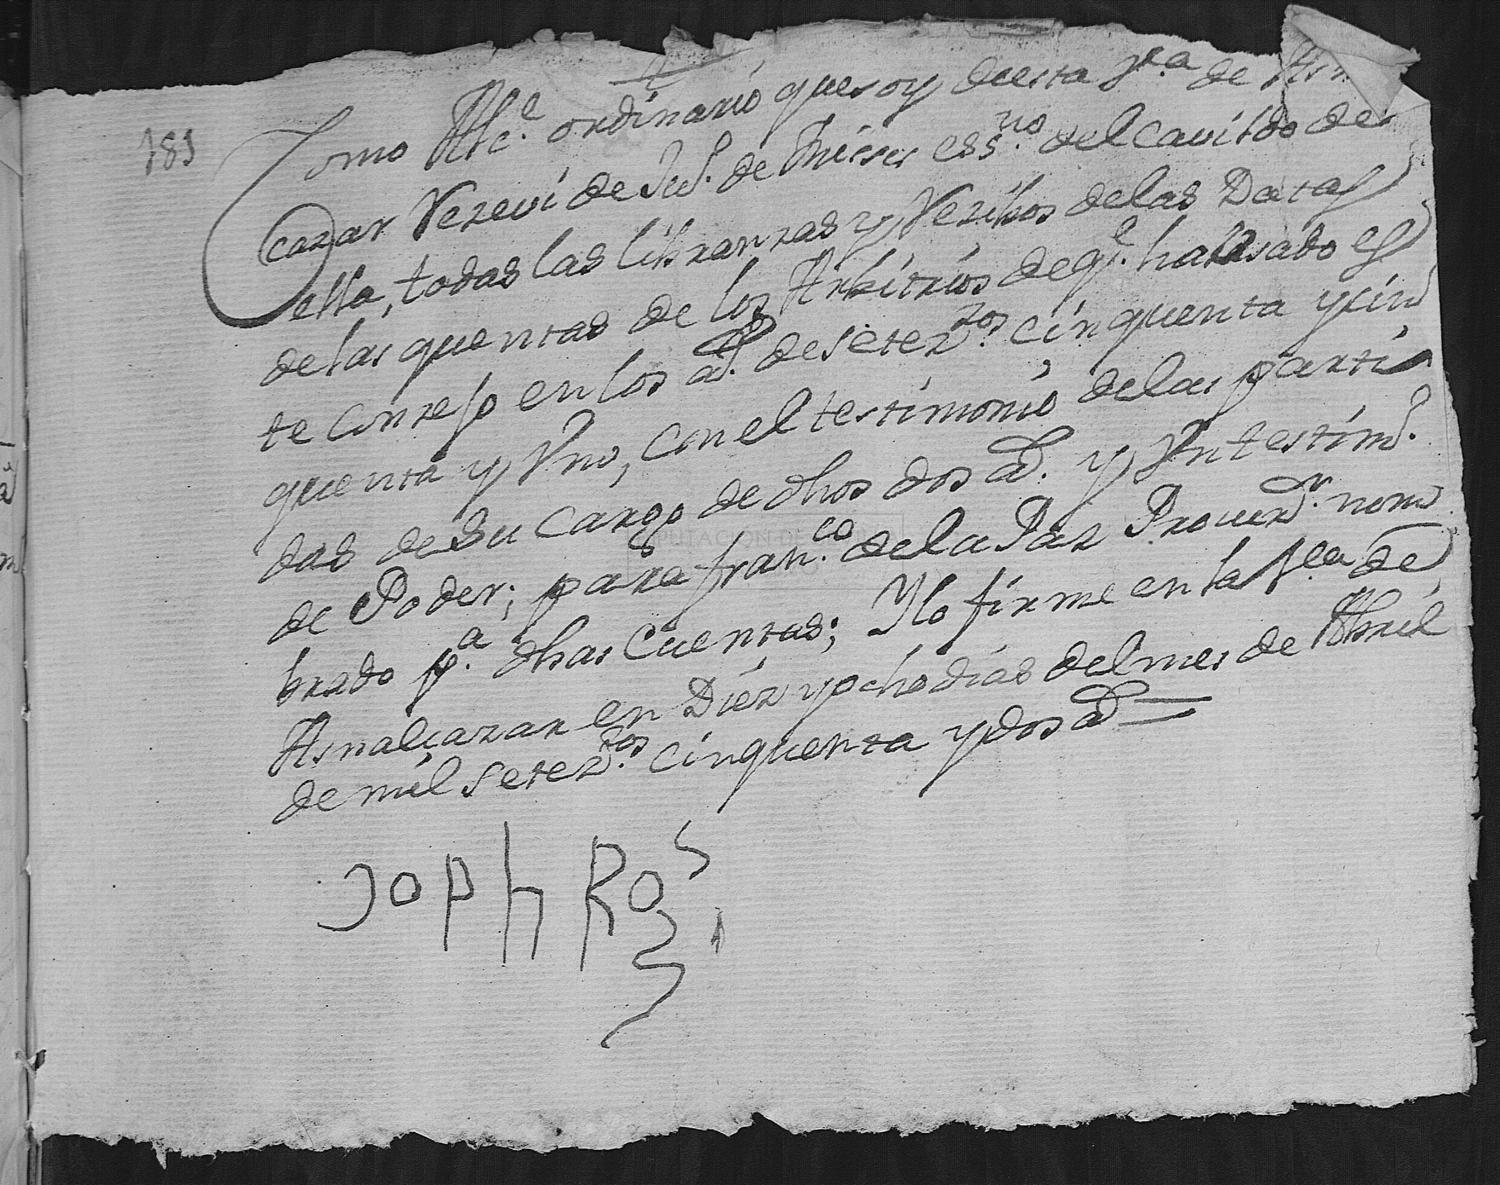 183
Como Alc.e ordinario que soy de esta V.a de Asn
cazar Rezevi de Ju.o de Mieses ess.no del cavildo de
ella, todas las libranzas y Rezibos de las Datas
de las quentas de los Arbitrios de q.e ha usado es
te Conzejo en los a.s de setez.tos cinquenta y cin
quenta y Uno, con el testimonio de las parti
das de su cargo de dhos dos a.s y Un testim.o
de Poder; para fran.co de la Paz Procur.dr nom
brado p.a dhas Cuentas; Y lo firme en la V.a de
Asnalcazar en Diez y ocho dias del mes de Abril
de mil setez.tos cinquenta y dos a.s =
Joph Ros
DIPUTACIÓN DE